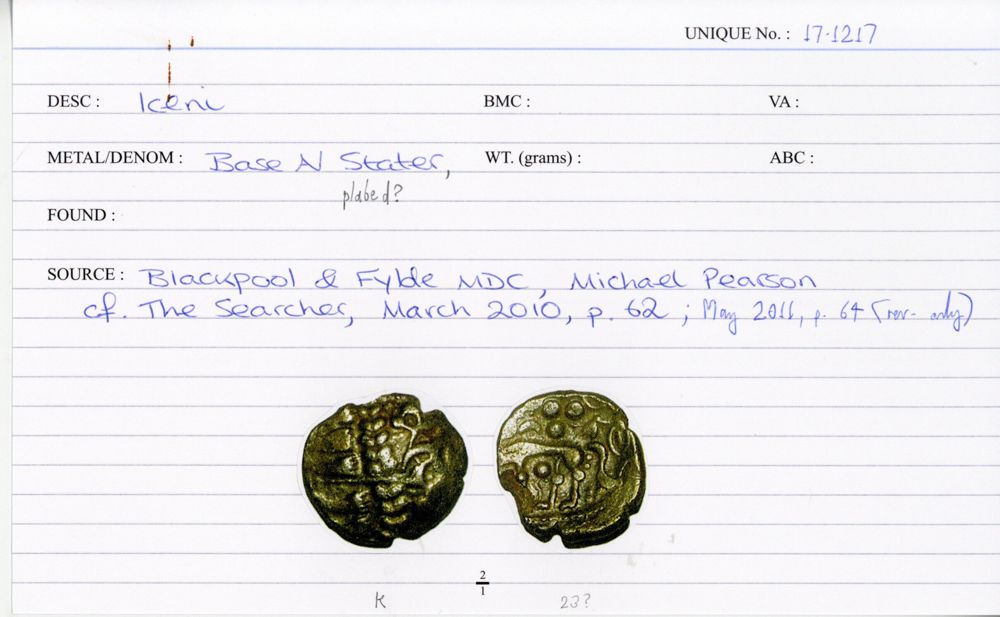 UNIQUE No. : 17-1217
DESC : Iceni BMC : VA :
METAL/DENOM : Base N Stater, WT. (grams) : ABC :
plated?
FOUND :
SOURCE : Blackpool & Fylde MDC, Michael Pearson
cf. The Searcher, March 2010, p. 62 ; May 2011, p. 64 (rev. only)
2
1
K 23?